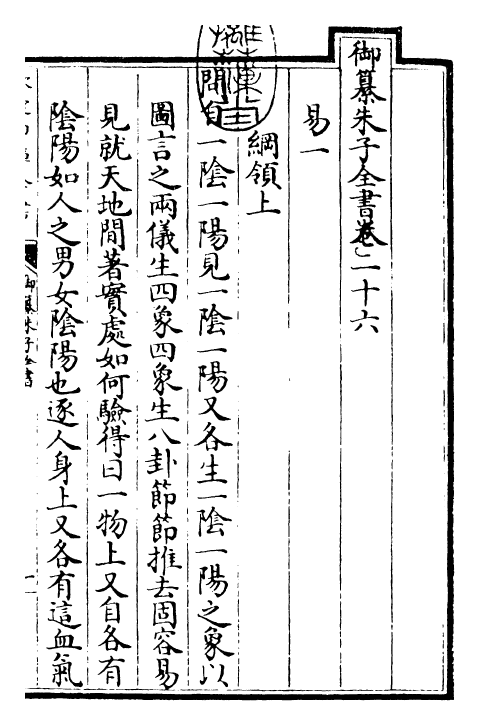 御纂朱子全書卷二十六
易一
綱領上
問自一陰一陽見一陰一陽又各生一陰一陽之象以
圖言之兩儀生四象四象生八卦節節推去固容易
見就天地間著實處如何驗得曰一物上又自各有
陰陽如人之男女陰陽也逐人身上又各有這血氣
御纂朱子全書